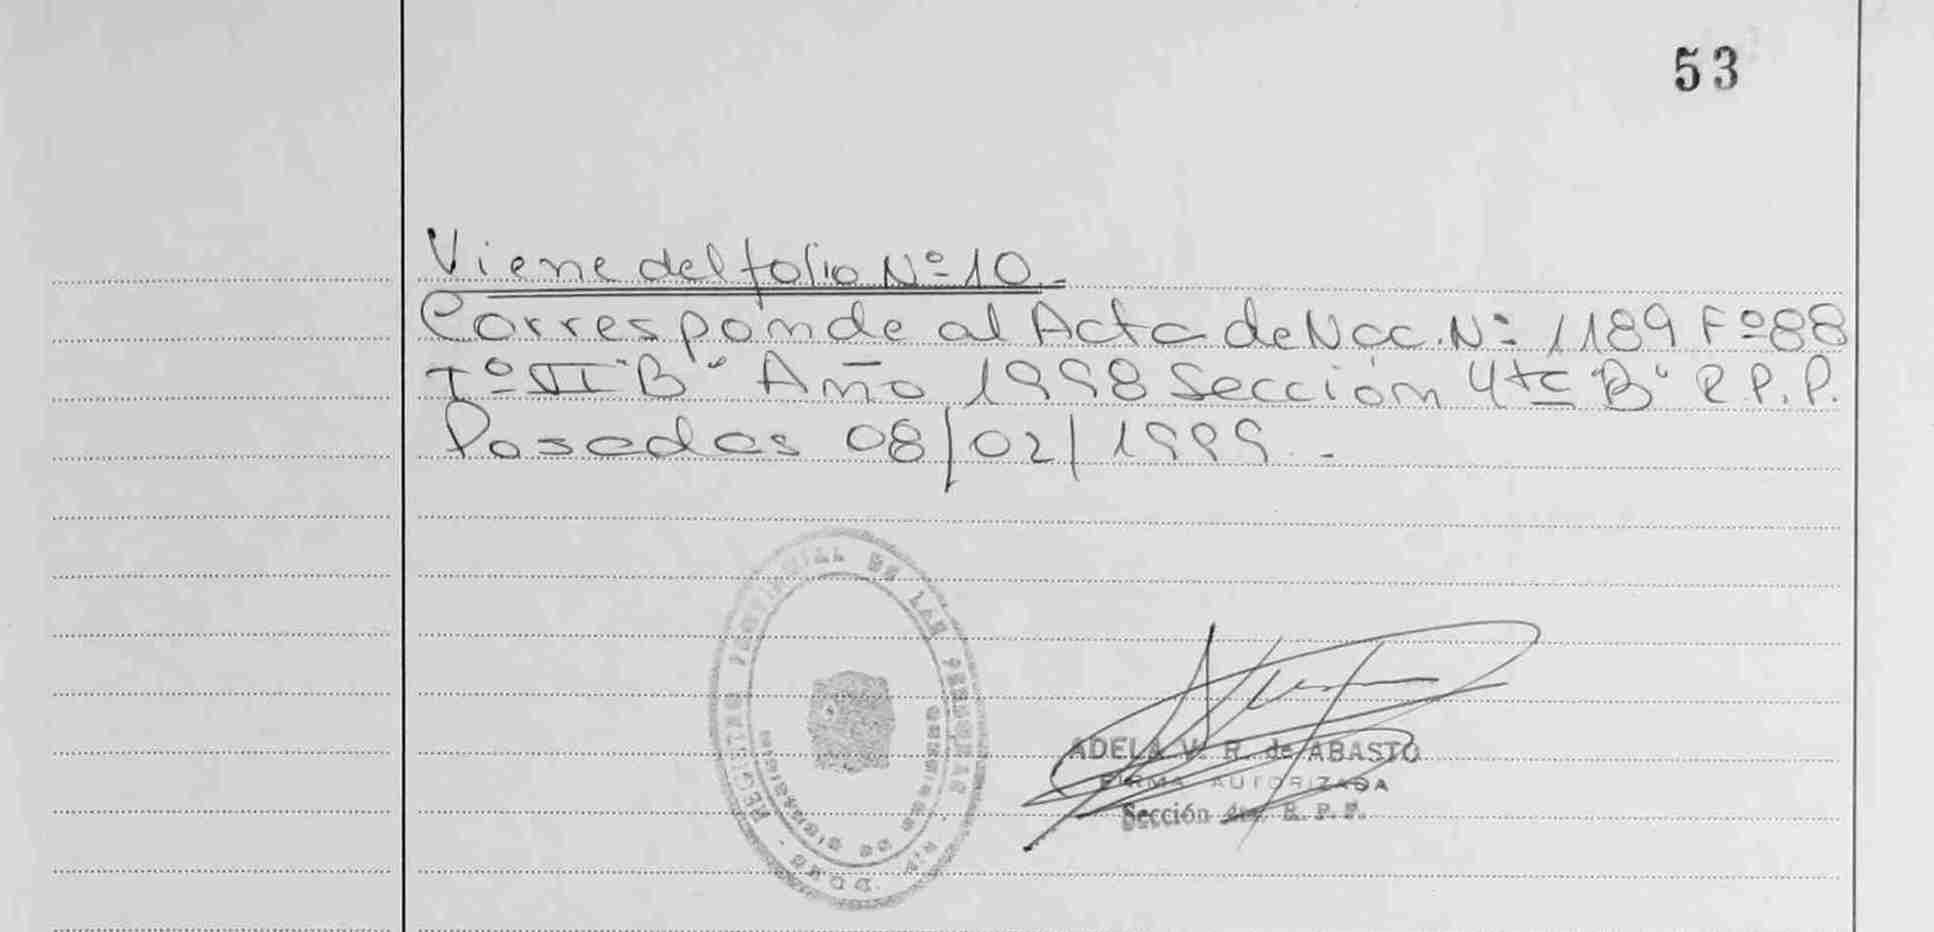 53
Viene del folio Nº 10.-
Corresponde al Acta de Nac. Nº 1189 Fº 88
Tº VI "B" Año 1998 Sección 4ta "B" R.P.P.
Posadas 08/02/1999.-
REGISTRO PROVINCIAL DE LAS PERSONAS
ADELA V. R. de ABASTO
FIRMA AUTORIZADA
Sección 4ta. R. P. P.